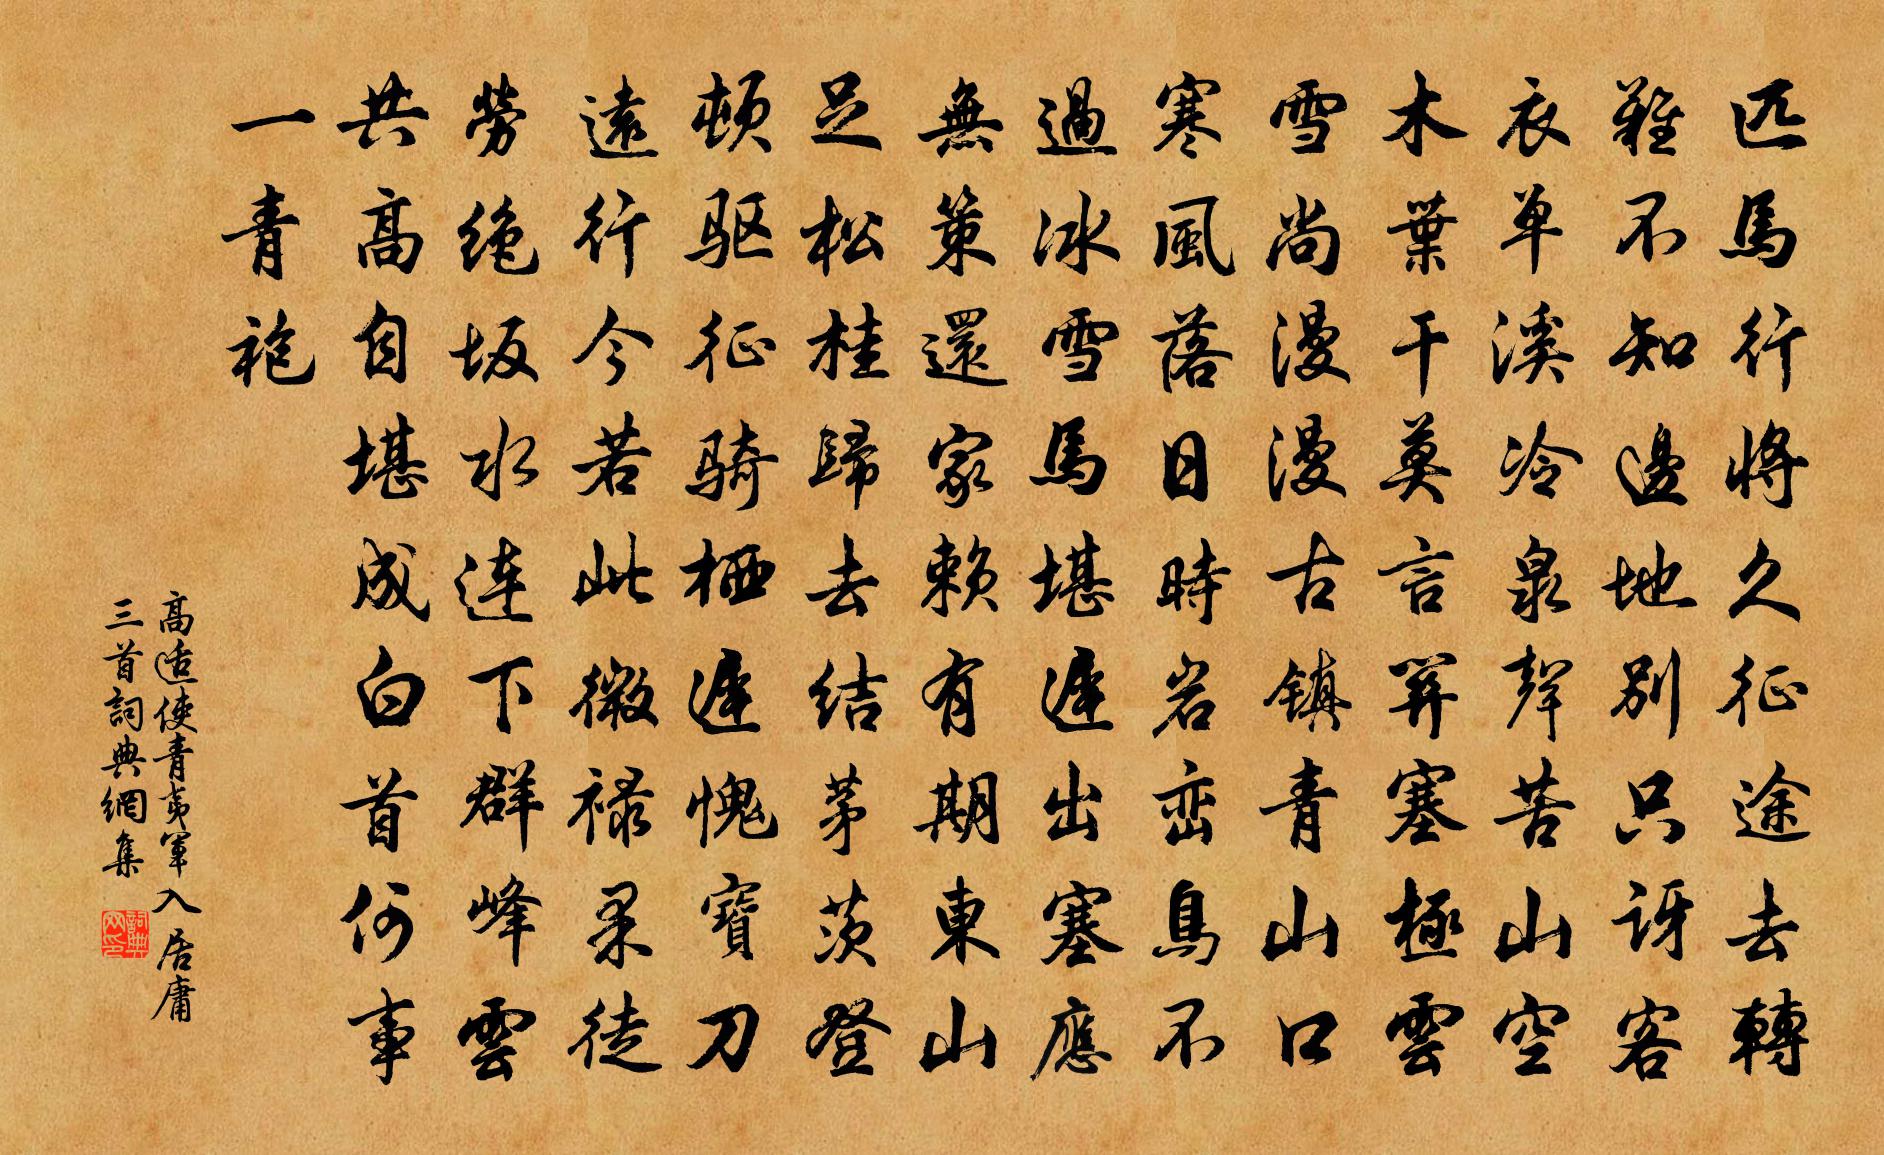 匹馬行將久征途去轉
難不知邊地別只訝客
衣单溪冷泉聲苦山空
木葉干莫言關塞極雲
雪尚漫漫古鎮青山口
寒風落日時岩峦鳥不
過冰雪馬堪遲出塞應
無策還家赖有期東山
足松桂歸去结茅茨登
頓驱征骑栖遲愧寶刀
遠行今若此微禄果徒
勞绝坂水连下群峰雲
共高自堪成白首何事
一青袍
高适使青夷軍入居庸
三首詞典網集
詞典网印